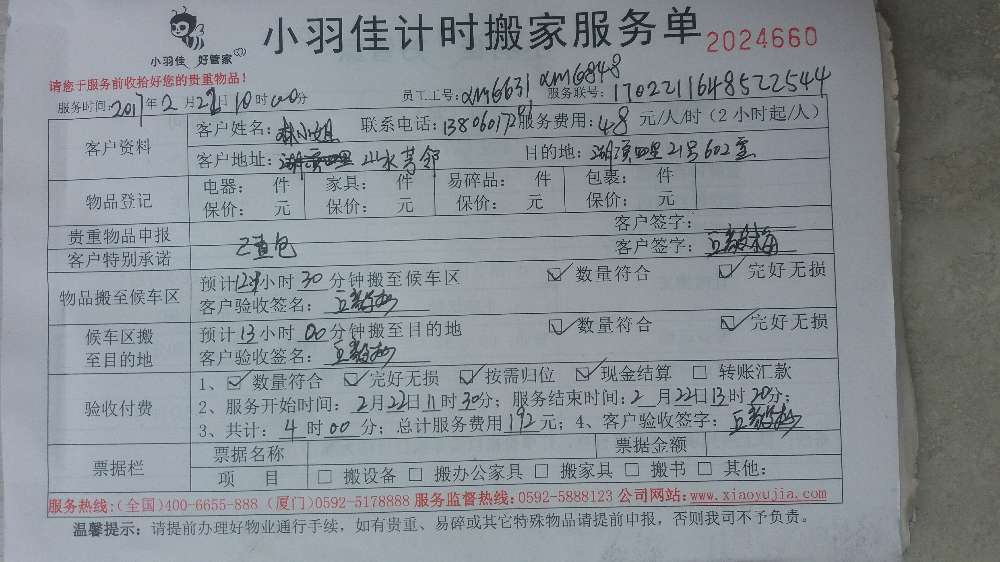 小羽佳 好管家
小羽佳计时搬家服务单 2024660
请您于服务前收拾好您的贵重物品！
服务时间：2017年2月22日10时00分 员工工号：XM6631 XM6848 服务联号：1702211648522544
客户资料 客户姓名：林小姐 联系电话： 服务费用：48元/人/时（2小时起/人）
客户地址： 山水芳邻 目的地：湖滨四里21号602室
物品登记 电器： 件 家具： 件 易碎品： 件 包裹： 件
保价： 元 保价： 元 保价： 元 保价： 元
贵重物品申报 客户签字：
客户特别承诺 已查包 客户签字：
物品搬至候车区 预计 小时30分钟搬至候车区 ☑数量符合 ☑完好无损
客户验收签名：
候车区搬至目的地 预计13小时00分钟搬至目的地 ☑数量符合 ☑完好无损
客户验收签名：
验收付费 1、☑数量符合 ☑完好无损 ☑按需归位 ☑现金结算 □转账汇款
2、服务开始时间：2月22日11时30分；服务结束时间：2月22日13时20分；
3、共计：4时00分；总计服务费用192元；4、客户验收签字：
票据栏 票据名称 票据金额
项 目 □搬设备 □搬办公家具 □搬家具 □搬书 □其他：
服务热线：（全国）400-6655-888（厦门）0592-5178888 服务监督热线：0592-5888123 公司网站：www.xiaoyujia.com
温馨提示：请提前办理好物业通行手续，如有贵重、易碎或其它特殊物品请提前申报，否则我司不予负责。